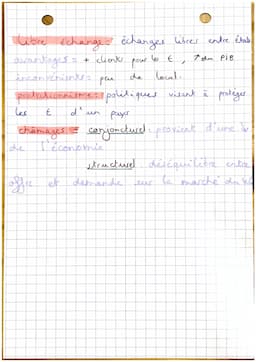 libre échange: échanges libres entre états
avantages: + clients pour le E, ↑ du PIB
inconvénients: peu de local.
protectionnisme: politiques visent à protéger
les E d'un pays
chômages = conjoncturel: provient d'une
de l'économie
structurel déséquilibre entre
offre et demande sur le marché du